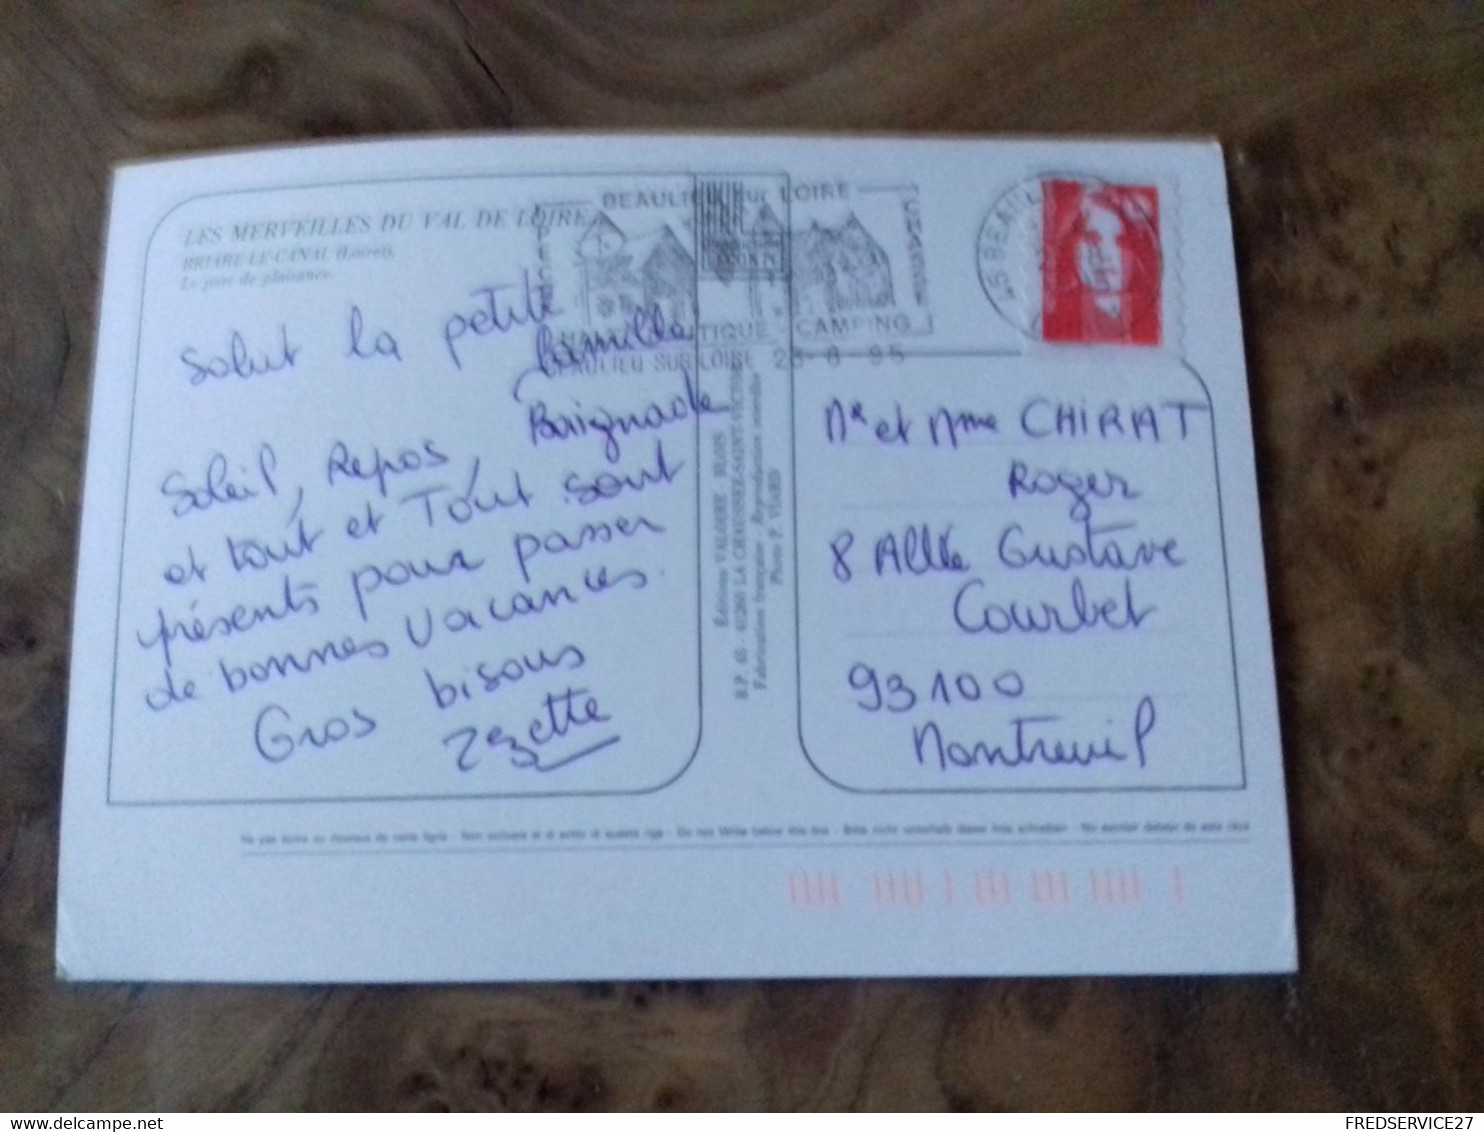 LES MERVEILLES DU VAL DE LOIRE
BRIARE-LE-CANAL (Loiret).
Le port de plaisance.
BEAULIEU sur LOIRE
CAMPING
BEAULIEU SUR LOIRE 23-6-95
45 BEAUL
Salut la petite
famille
Soleil, Repos, Baignade
et tout et Tout sont
présents pour passer
de bonnes vacances.
Gros bisous
Zézette
Editions VALOIRE - BLOIS
B.P. 45 - 41260 LA CHAUSSÉE-SAINT-VICTOR
Fabrication française - Reproduction interdite
Photo P. VIARD
Mr et Mme CHIRAT
Roger
8 Allée Gustave
Courbet
93100
Montreuil
Ne pas écrire au dessous de cette ligne - Non scrivere al di sotto di questa riga - Do not Write below this line - Bitte nicht unterhalb dieser linie schreiben - No escribir debajo de esta raya
FREDSERVICE27
delcampe.net